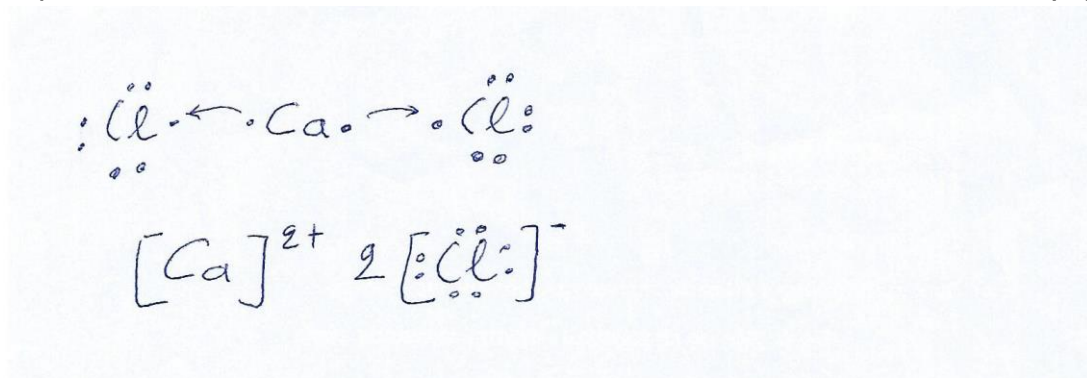 :C̈l· ← ·Ca· → ·C̈l:
[Ca]²⁺ 2[:C̈l:]⁻